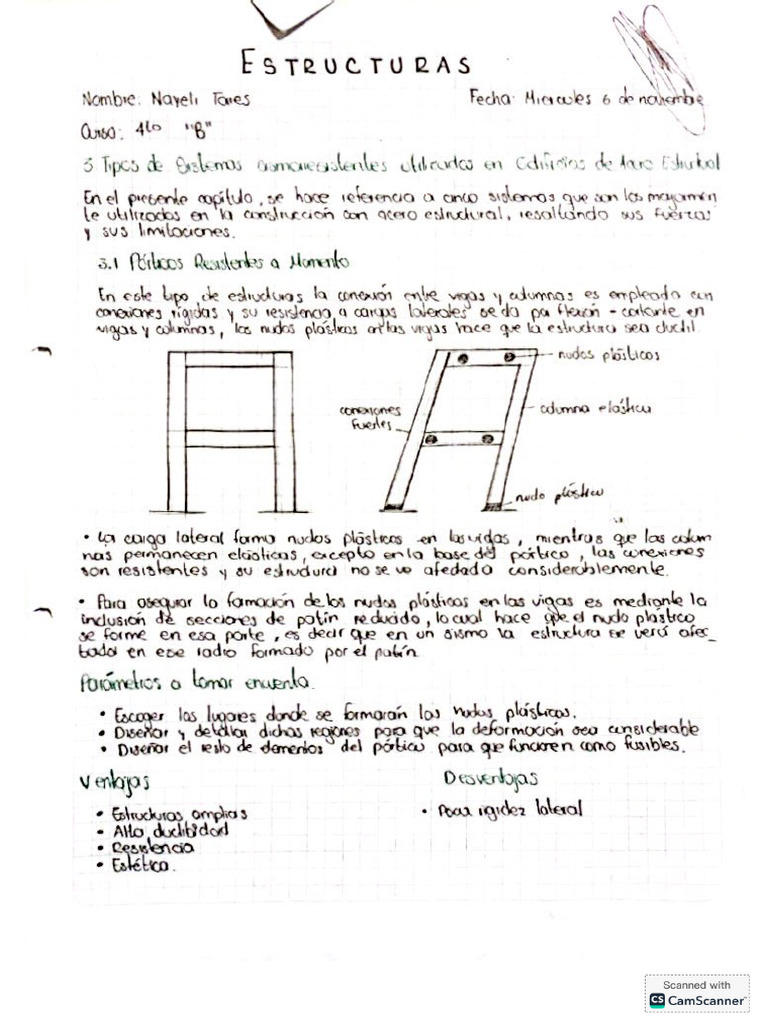 ESTRUCTURAS
Nombre: Nayeli Tares
Fecha: Miercoles 6 de noviembre
Curso: 4to "B"
3 Tipos de Sistemas sismorresistentes utilizados en Edificios de Acero Estructural
En el presente capítulo, se hace referencia a cinco sistemas que son los mayormen
te utilizados en la construcción con acero estructural, resaltando sus fuerzas
y sus limitaciones.
3.1 Pórticos Resistentes a Momento
En este tipo de estructuras la conexión entre vigas y columnas es empleada con
conexiones rígidas y su resistencia a cargas laterales se da por flexión - cortante en
vigas y columnas, los nudos plásticos en las vigas hace que la estructura sea ductil.
nudos plásticos
conexiones
fuertes
columna elástica
nudo plástico
• La carga lateral forma nudos plásticos en las vigas, mientras que las colum
nas permanecen elásticas, excepto en la base del pórtico, las conexiones
son resistentes y su estructura no se ve afectada considerablemente.
• Para asegurar la formación de los nudos plásticos en las vigas es mediante la
inclusión de secciones de patín reducido, lo cual hace que el nudo plástico
se forme en esa parte, es decir que en un sismo la estructura se verá afec_
tada en ese radio formado por el patín.
Parámetros a tomar encuenta.
• Escoger los lugares donde se formarán los nudos plásticos.
• Diseñar y detallar dichas regiones para que la deformación sea considerable
• Diseñar el resto de elementos del pórtico para que funcionen como fusibles.
Ventajas
Desventajas
• Estructuras amplias
• Poca rigidez lateral
• Alta ductibidad
• Resistencia
• Estética.
Scanned with
CS CamScanner